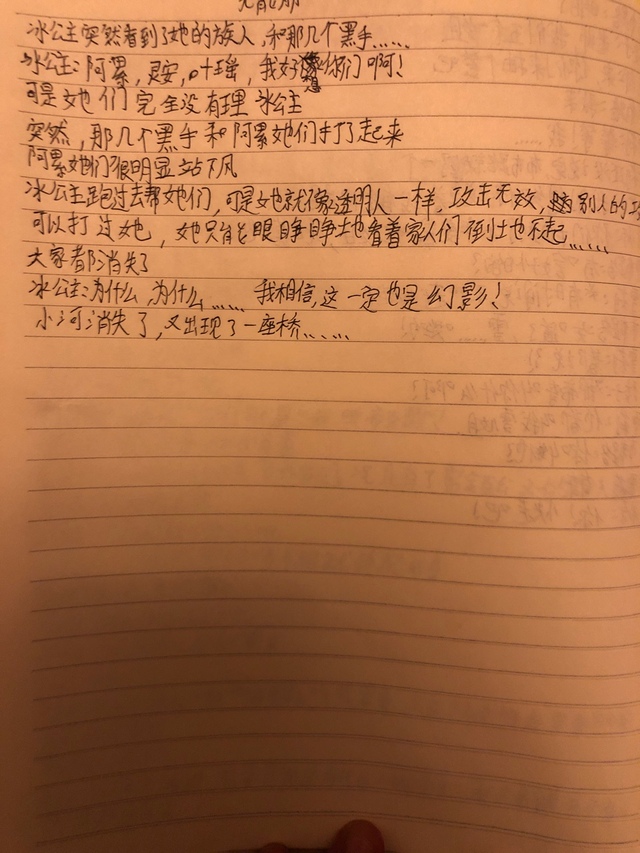 冰公主突然看到了她的族人，和那几个黑手……
冰公主：阿累，灵安，叶瑶，我好想你们啊！
可是她们完全没有理冰公主
突然，那几个黑手和阿累她们打了起来
阿累她们很明显站下风
冰公主跑过去帮她们，可是她就像透明人一样，攻击无效，别人的攻
可以打过她，她只有眼睁睁地看着家人们倒地不起……
大家都消失了
冰公主：为什么，为什么……我相信，这一定也是幻影！
小河消失了，又出现了一座桥……